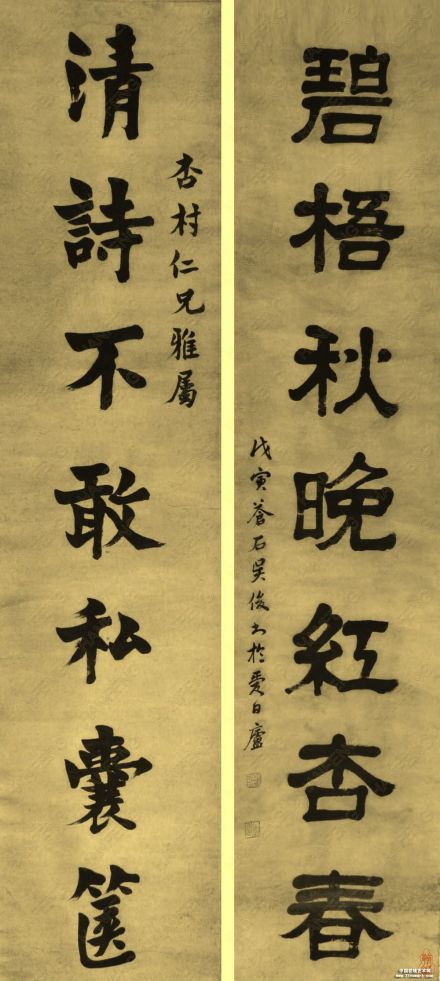 碧梧秋晚紅杏春
戊寅蒼石吳俊书於愛日廬
杏村仁兄雅屬
清詩不敢私囊篋